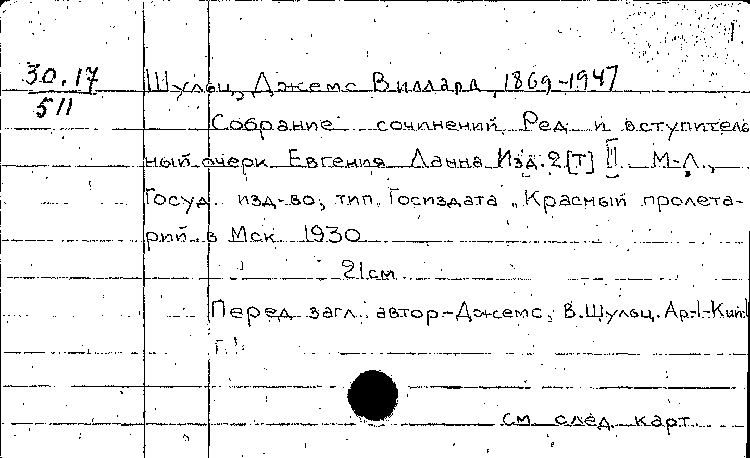 30.17
511
Шульц, Джемс Виллард, 1869-1947
Собрание сочинений Ред и вступитель
ный очерк Евгения Ланна Изд. 2 [Т] II М-Л.,
Госуд. изд-во, тип. Госиздата „Красный пролета-
рий" в Мск 1930
21см
Перед загл. автор-Джемс, В. Шульц.
см след карт